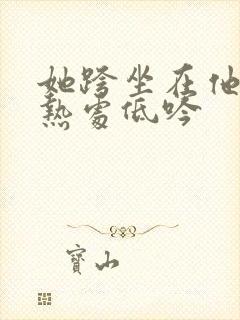 她跨坐在他
熱處低吟
寶山